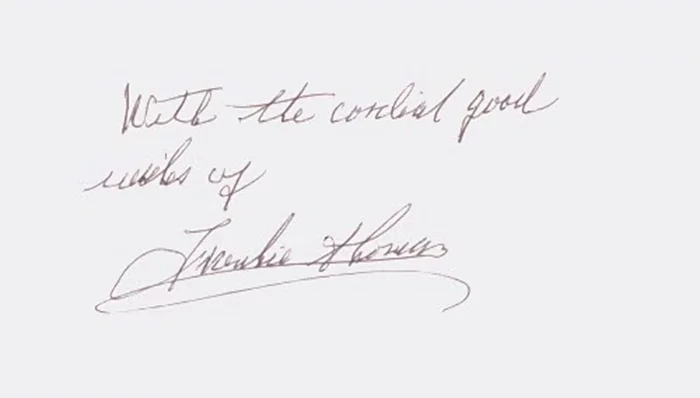 With the cordial good
wishes of
Frankie Thomas